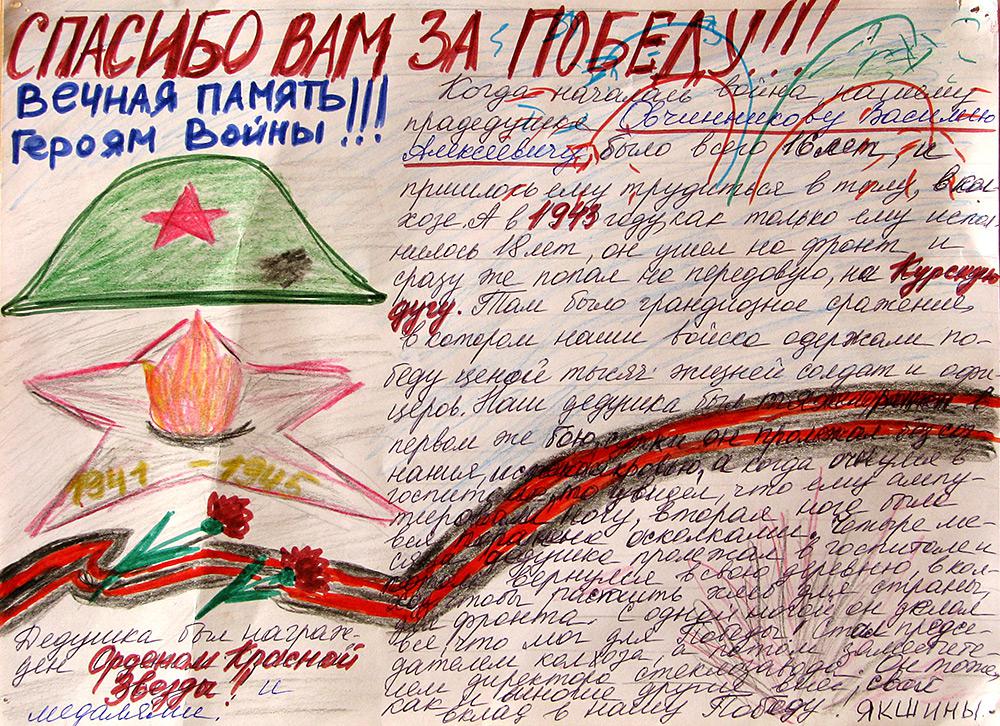 СПАСИБО ВАМ ЗА ПОБЕДУ!!!
ВЕЧНАЯ ПАМЯТЬ!!!
Героям Войны!!!
Когда началась война, нашему
прадедушке Овчинникову Василию
Алексеевичу, было всего 16 лет, и
пришлось ему трудиться в тылу, в кол-
хозе. А в 1943 году, как только ему испол-
нилось 18 лет, он ушел на фронт и
сразу же попал на передовую, на Курскую
дугу. Там было грандиозное сражение,
в котором наши войска одержали по-
беду ценой тысяч жизней солдат и офи-
церов. Наш дедушка был
первом же бою, сутки он пролежал без созн-
нания, истекая кровью, а когда очнулся в
госпитале, то увидел, что ему ампу-
тировали ногу, вторая нога была
вся поранена осколками. Четыре ме-
сяца дедушка пролежал в госпитале и
вернулся в свою деревню, в кол-
хоз, чтобы растить хлеб для страны,
для фронта. С одной ногой он делал
все, что мог для Победы! Стал предсе-
дателем колхоза, а потом заместите-
лем директора стеклозавода. Он тоже,
как и многие другие внес свой
вклад в нашу Победу
ЯКШИНЫ.
1941 - 1945
Дедушка был награж-
ден Орденом Красной
Звезды! и
медалями.